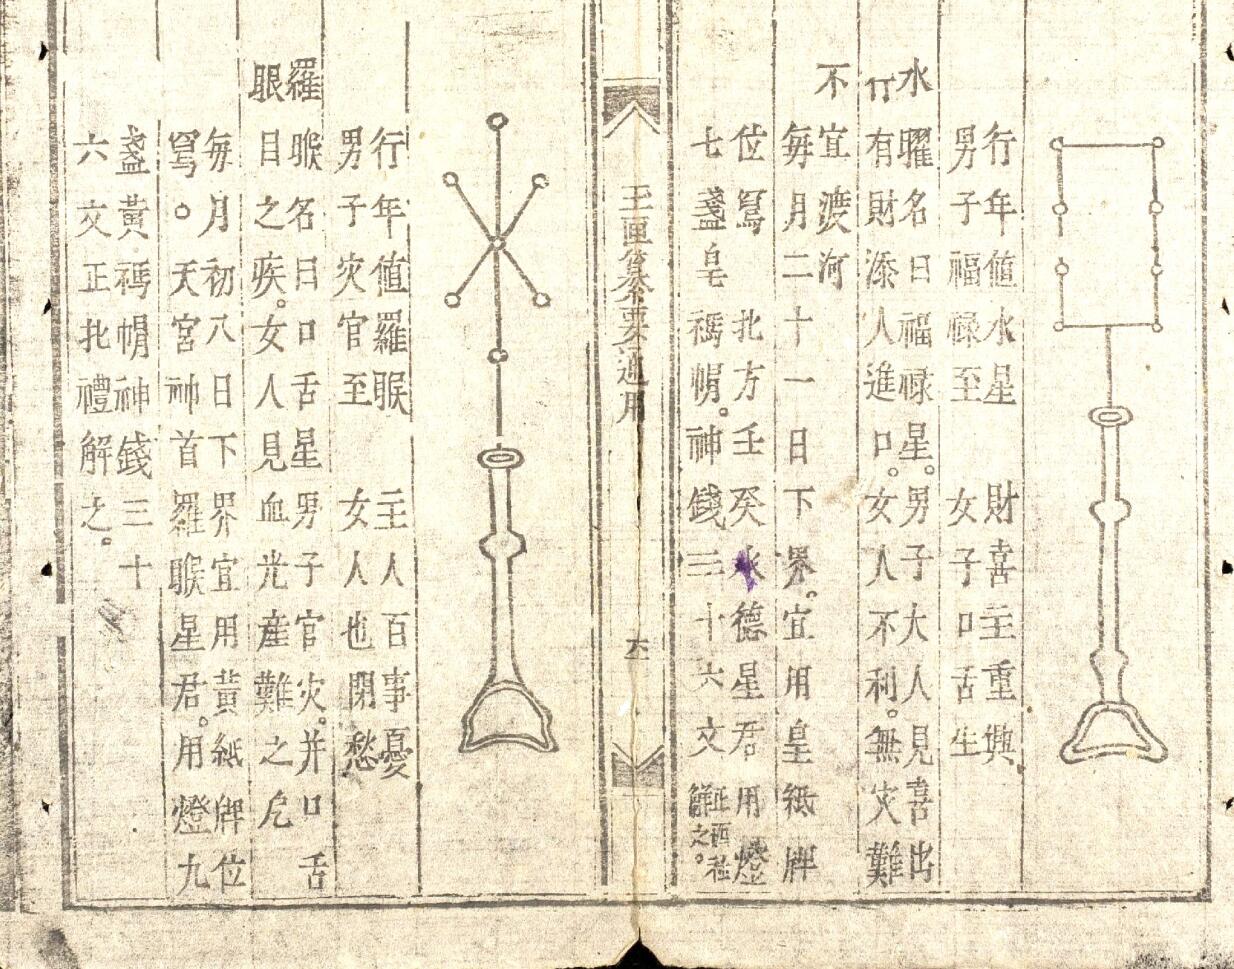 行年値水星　財喜主重興
男子福祿至　女子口舌生
水曜名曰福祿星。男子大人見喜出
行有財添人進口。女人不利。無灾難
不宜渡河
每月二十一日下界。宜用皇紙牌
位寫　北方壬癸水德星君用燈
七盞皇禡帽。神錢三十六文正西禮解之。
玉匣纂要通用
行年値羅睺　主人百事憂
男子灾官至　女人也閉愁
羅睺名曰口舌星男子官灾。并口舌
眼目之疾。女人見血光產難之厄
每月初八日下界宜用黃紙牌位
寫。天宮神首羅睺星君。用燈九
盞黃禡帽神錢三十
六文正北禮解之。